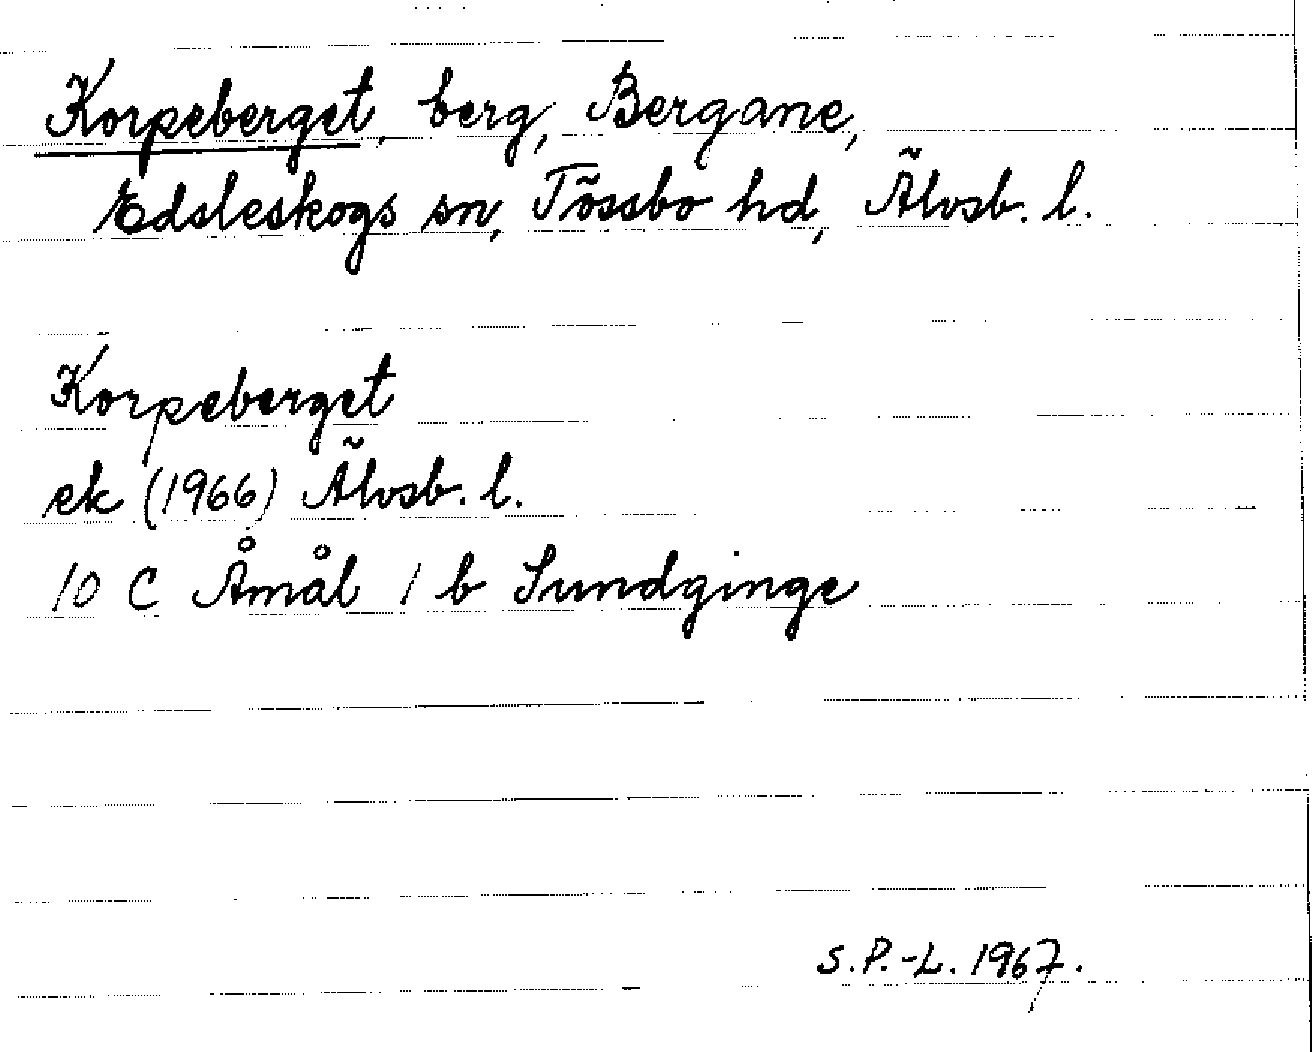 Korpeberget, berg, Bergane,
Edsleskogs sn, Tössbo hd, Älvsb. l.
Korpeberget
ek (1966) Älvsb. l.
10 C Åmål 1 b Sundginge
S.P.-L. 1967.